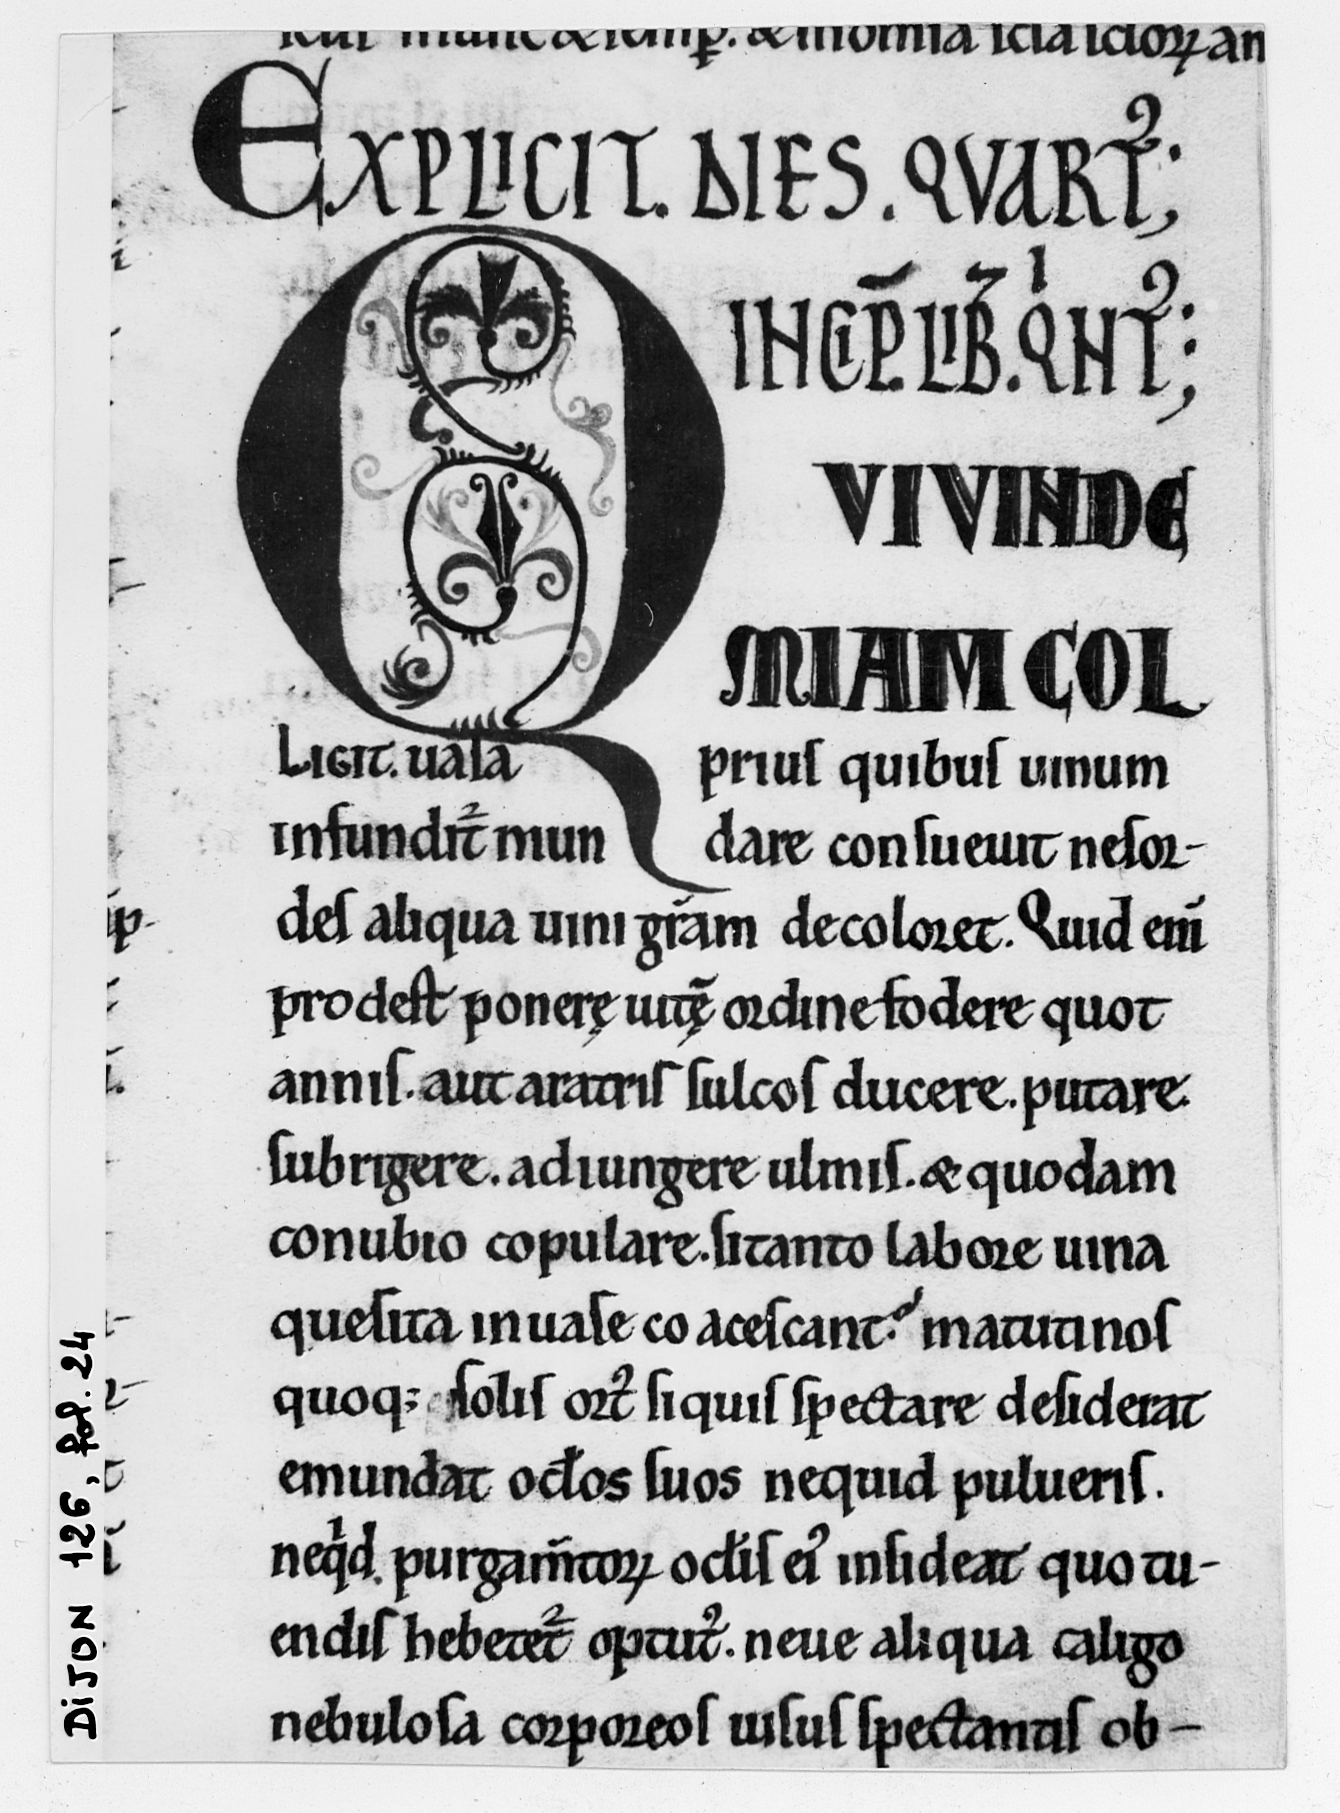 EXPLICIT. DIES. QVARTꝰ;
INCIP̄. LIB̄. QͥNTꝰ;
QVI VINDE
MIAM COL
LIGIT. uasa prius quibus uinum
infundit᷑ mun dare consueuit ne sor-
des aliqua uini gr̄am decoloret. Quid eni̅
prodest ponerę uitę̄ ordine fodere quot
annis. aut aratris sulcos ducere. putare.
subrigere. adiungere ulmis. & quodam
conubio copulare. si tanto labore uina
quesita in uase coacescant? matutinos
quoq; solis ortꝰ si quis spectare desiderat
emundat oc̄los suos nequid pulueris.
neqͥd purgam̄toꝝ oc̄lis eiꝰ insideat quo tu-
endis hebetet᷑ optutꝰ. neue aliqua caligo
nebulosa corporeos uisus spectantis ob-
DIJON 126, fol. 24